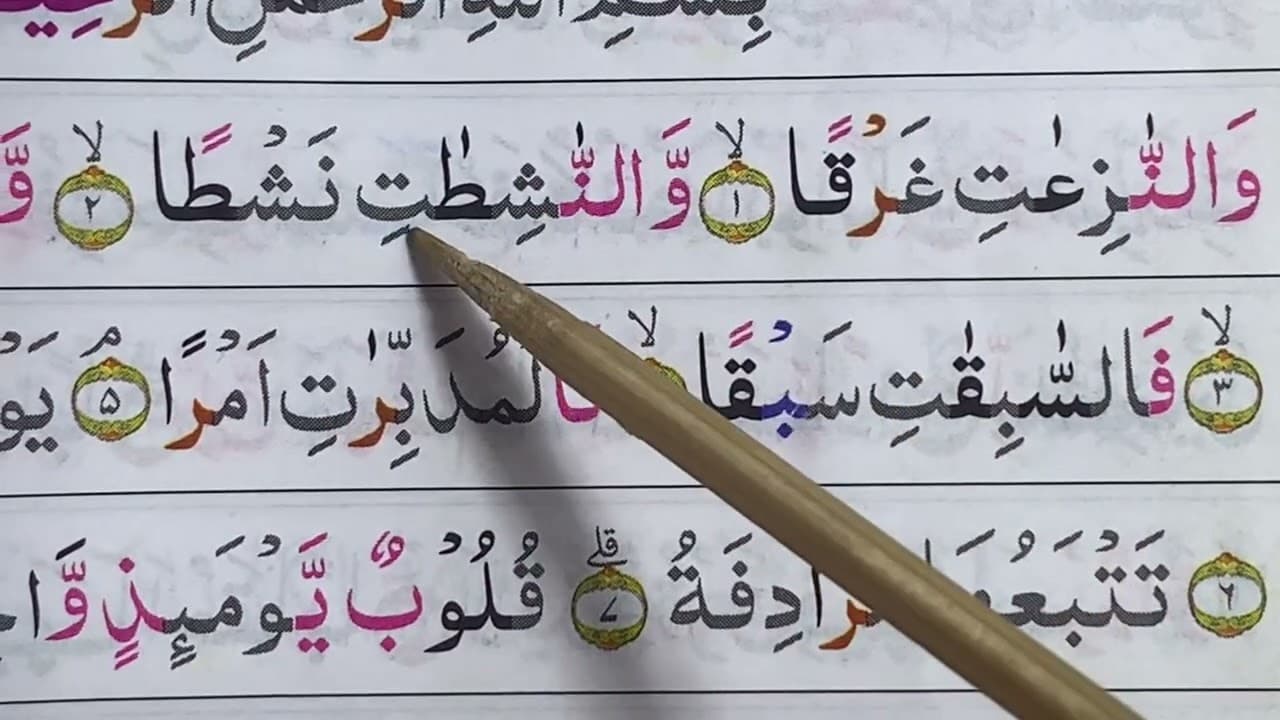 بِسْمِ اللّٰهِ الرَّحْمٰنِ الرَّحِيْمِ
وَالنّٰزِعٰتِ غَرْقًا ۙ۱ وَّالنّٰشِطٰتِ نَشْطًا ۙ۲ وَّ
ۙ۳ فَالسّٰبِقٰتِ سَبْقًا ۙ فَالْمُدَبِّرٰتِ اَمْرًا ۘ۵ يَوْ
۶ تَتْبَعُهَا الرَّادِفَةُ ۗ۷ قُلُوْبٌ يَّوْمَىِٕذٍ وَّا